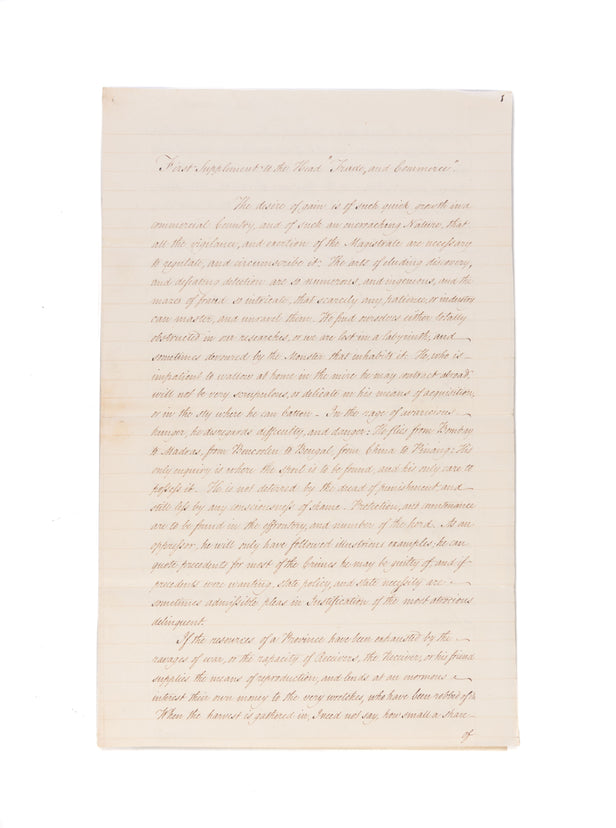 1
First Supplement to the Head "Trade, and Commerce".
The desire of gain is of such quick growth in a
commercial Country, and of such an encroaching Nature, that
all the vigilance, and exertion of the Magistrate are necessary
to regulate, and circumscribe it: The arts of eluding discovery,
and defeating detection are so numerous, and ingenious, and the
mazes of fraud so intricate, that scarcely any patience, or industry
can master, and unravel them. We find ourselves either totally
obstructed in our researches, or we are lost in a labyrinth, and
sometimes devoured by the Monster that inhabits it. He, who is
impatient to wallow at home in the mire he may contract abroad,
will not be very scrupulous, or delicate in his means of acquisition,
or in the sty where he can batten - In the rage of avaricious
hunger, he disregards difficulty, and danger: He flies from Bombay
to Madras, from Bencoolen to Bengal, from China to Pinang: His
only enquiry is where the spoil is to be found, and his only care to
possess it. He is not deterred by the dread of punishment and
still less by any consciousness of shame. Protection, and countenance
are to be found in the effrontery, and number of the herd. As an
oppressor, he will only have followed illustrious examples, he can
quote precedents for most of the Crimes he may be guilty of; and if
precedents were wanting, state policy, and state necessity are
sometimes admissible pleas in Justification of the most atrocious
delinquent.
If the resources of a Province have been exhausted by the
ravages of war, or the rapacity of Receivers, the Receiver, or his friend
supplies the means of reproduction, and lends at an enormous
interest their own money to the very wretches, who have been robbed of it
When the harvest is gathered in, I need not say, how small a share
of